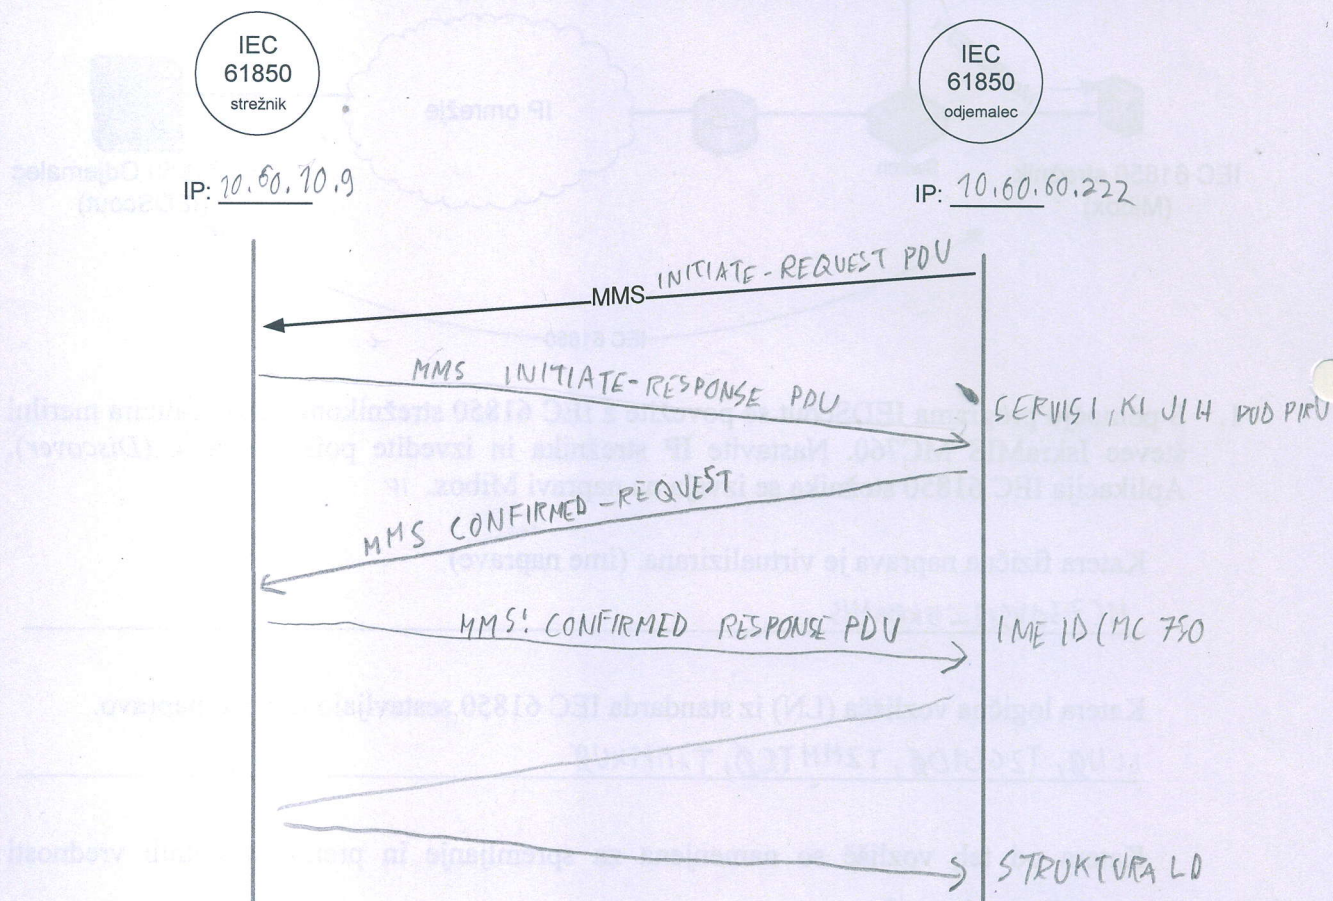 IEC
61850
strežnik
IEC
61850
odjemalec
IP: 10.60.70.9
IP: 10.60.60.222
MMS INITIATE-REQUEST PDU
MMS INITIATE-RESPONSE PDU
SERVISI, KI JIH PODPIRU
MMS CONFIRMED-REQUEST
MMS: CONFIRMED RESPONSE PDU
IME LD (MC 750
STRUKTURA LD